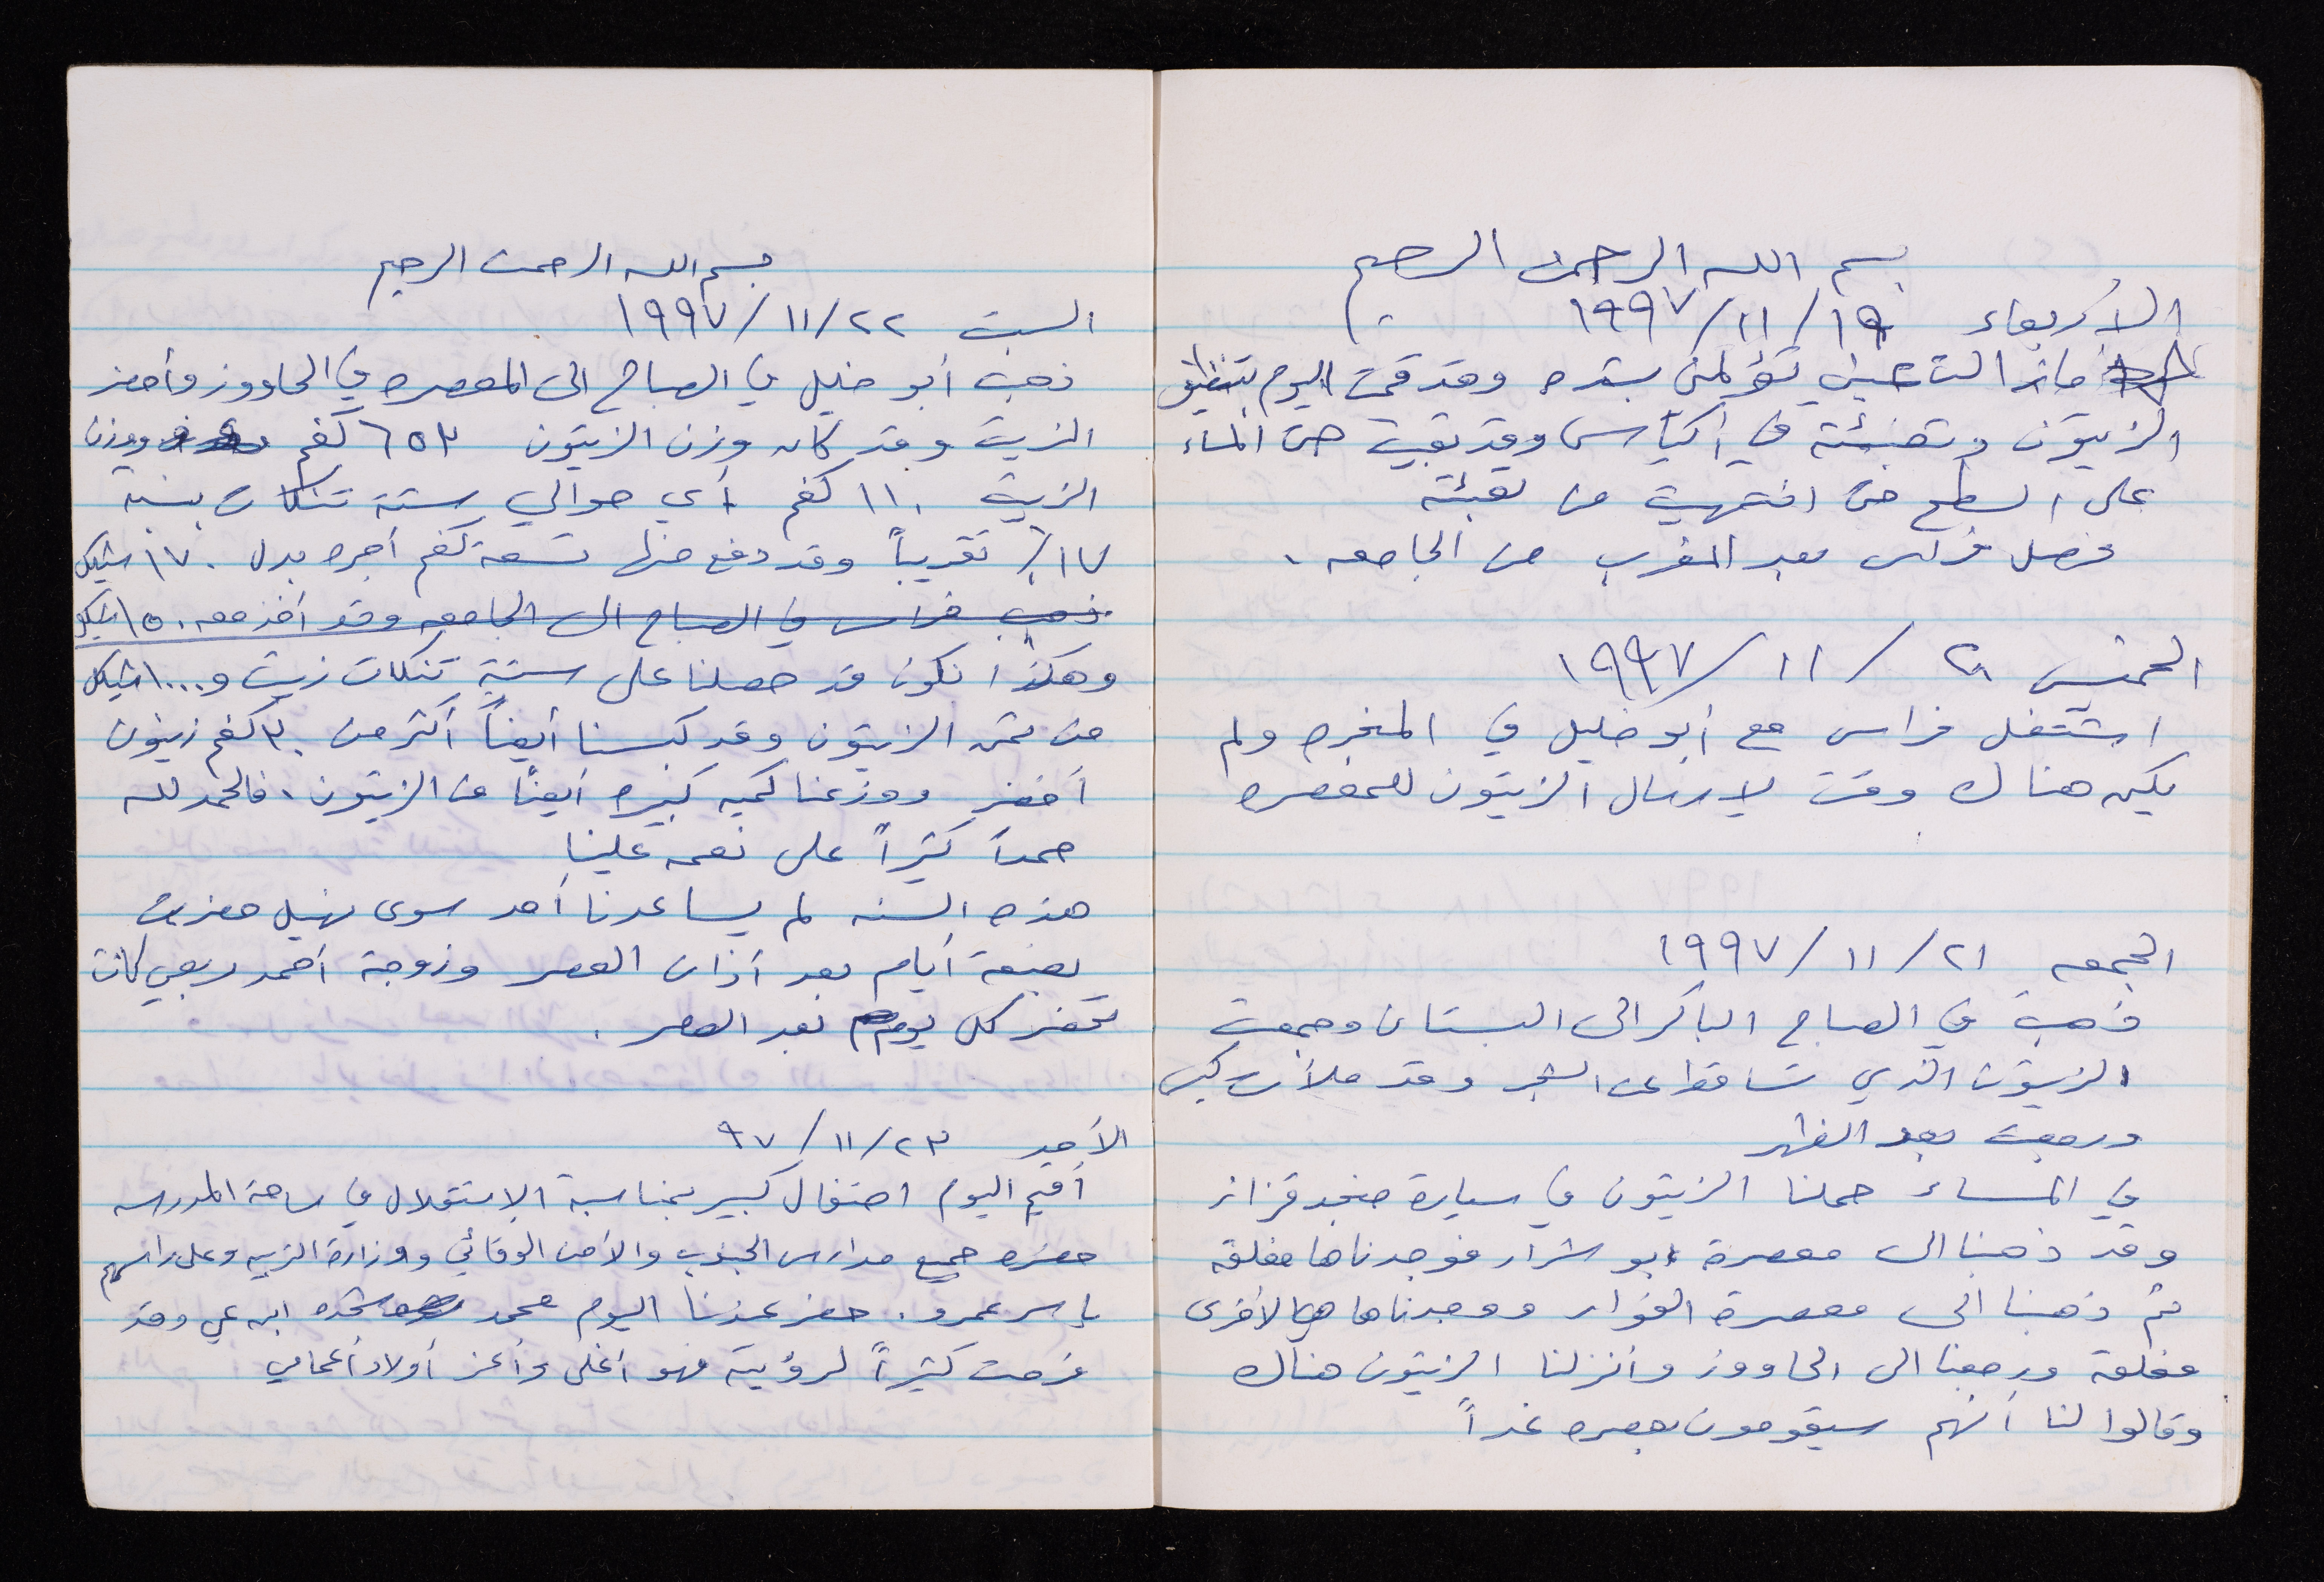 بسم الله الرحمن الرحيم
الأربعاء ١٩/١١/١٩٩٧
ما زالت عيني تؤلمني بشده وقد قمت اليوم بتنظيف
الزيتون وتعبئته في أكياس وقد بقيت حتى المساء
على السطح حتى انتهيت من تعبئته
وصل فراس بعد المغرب من الجامعه .
الخميس ٢٠/١١/١٩٩٧
اشتغل فراس مع أبو خليل في المنجره ولم
يكن هناك وقت لإرسال الزيتون للمعصره
الجمعه ٢١/١١/١٩٩٧
ذهبت في الصباح الباكر الى البستان وجمعت
الزيتون الذي تساقط عن الشجر وقد ملأت كيس
ورجعت بعد الظهر
في المساء حملنا الزيتون في سيارة منجد قزاز
وقد ذهبنا الى معصرة ابو شرار فوجدناها مغلقه
ثم ذهبنا الى معصرة الفوار ووجدناها هي الأخرى
مغلقة ورجعنا الى الحاووز وأنزلنا الزيتون هناك
وقالوا لنا أنهم سيقومون بعصره غداً
بسم الله الرحمن الرحيم
السبت ٢٢/١١/١٩٩٧
ذهب أبو خليل في الصباح الى المعصره في الحاووز وأحضر
الزيت وقد كان وزن الزيتون ٦٥٣ كغم ووزن
الزيت ١١٠ كغم أي حوالي ستة تنكات بنسبة
١٧٪ تقريباً وقد دفع منها تسعة كغم أجره بدل ١٧٠ شيكل
ذهب فراس في الصباح الى الجامعه وقد أخذ معه ١٥٠ شيكل
وهكذا نكون قد حصلنا على ستة تنكات زيت و ١٠٠٠ شيكل
من ثمن الزيتون وقد كبسنا أيضاً أكثر من ٣٠ كغم زيتون
أخضر ووزعنا كميه كبيره أيضاً من الزيتون . فالحمد لله
حمداً كثيراً على نعمه علينا
هذه السنه لم يساعدنا أحد سوى نهيل حضرت
بضعة أيام بعد أذان العصر وزوجة أحمد ربعي كانت
تحضر كل يوم بعد العصر .
الأحد ٢٣/١١/٩٧
أقيم اليوم احتفال كبير بمناسبة الاستقلال في ساحة المدرسه
حضره جميع مدارس الجنوب والأمن الوقائي ووزارة التربيه وعلى رأسهم
ياسر عمرو . حضر عندنا اليوم محمد شحده ابن عمي وقد
فرحت كثيراً لرؤيته فهو أغلى وأعز أولاد أعمامي